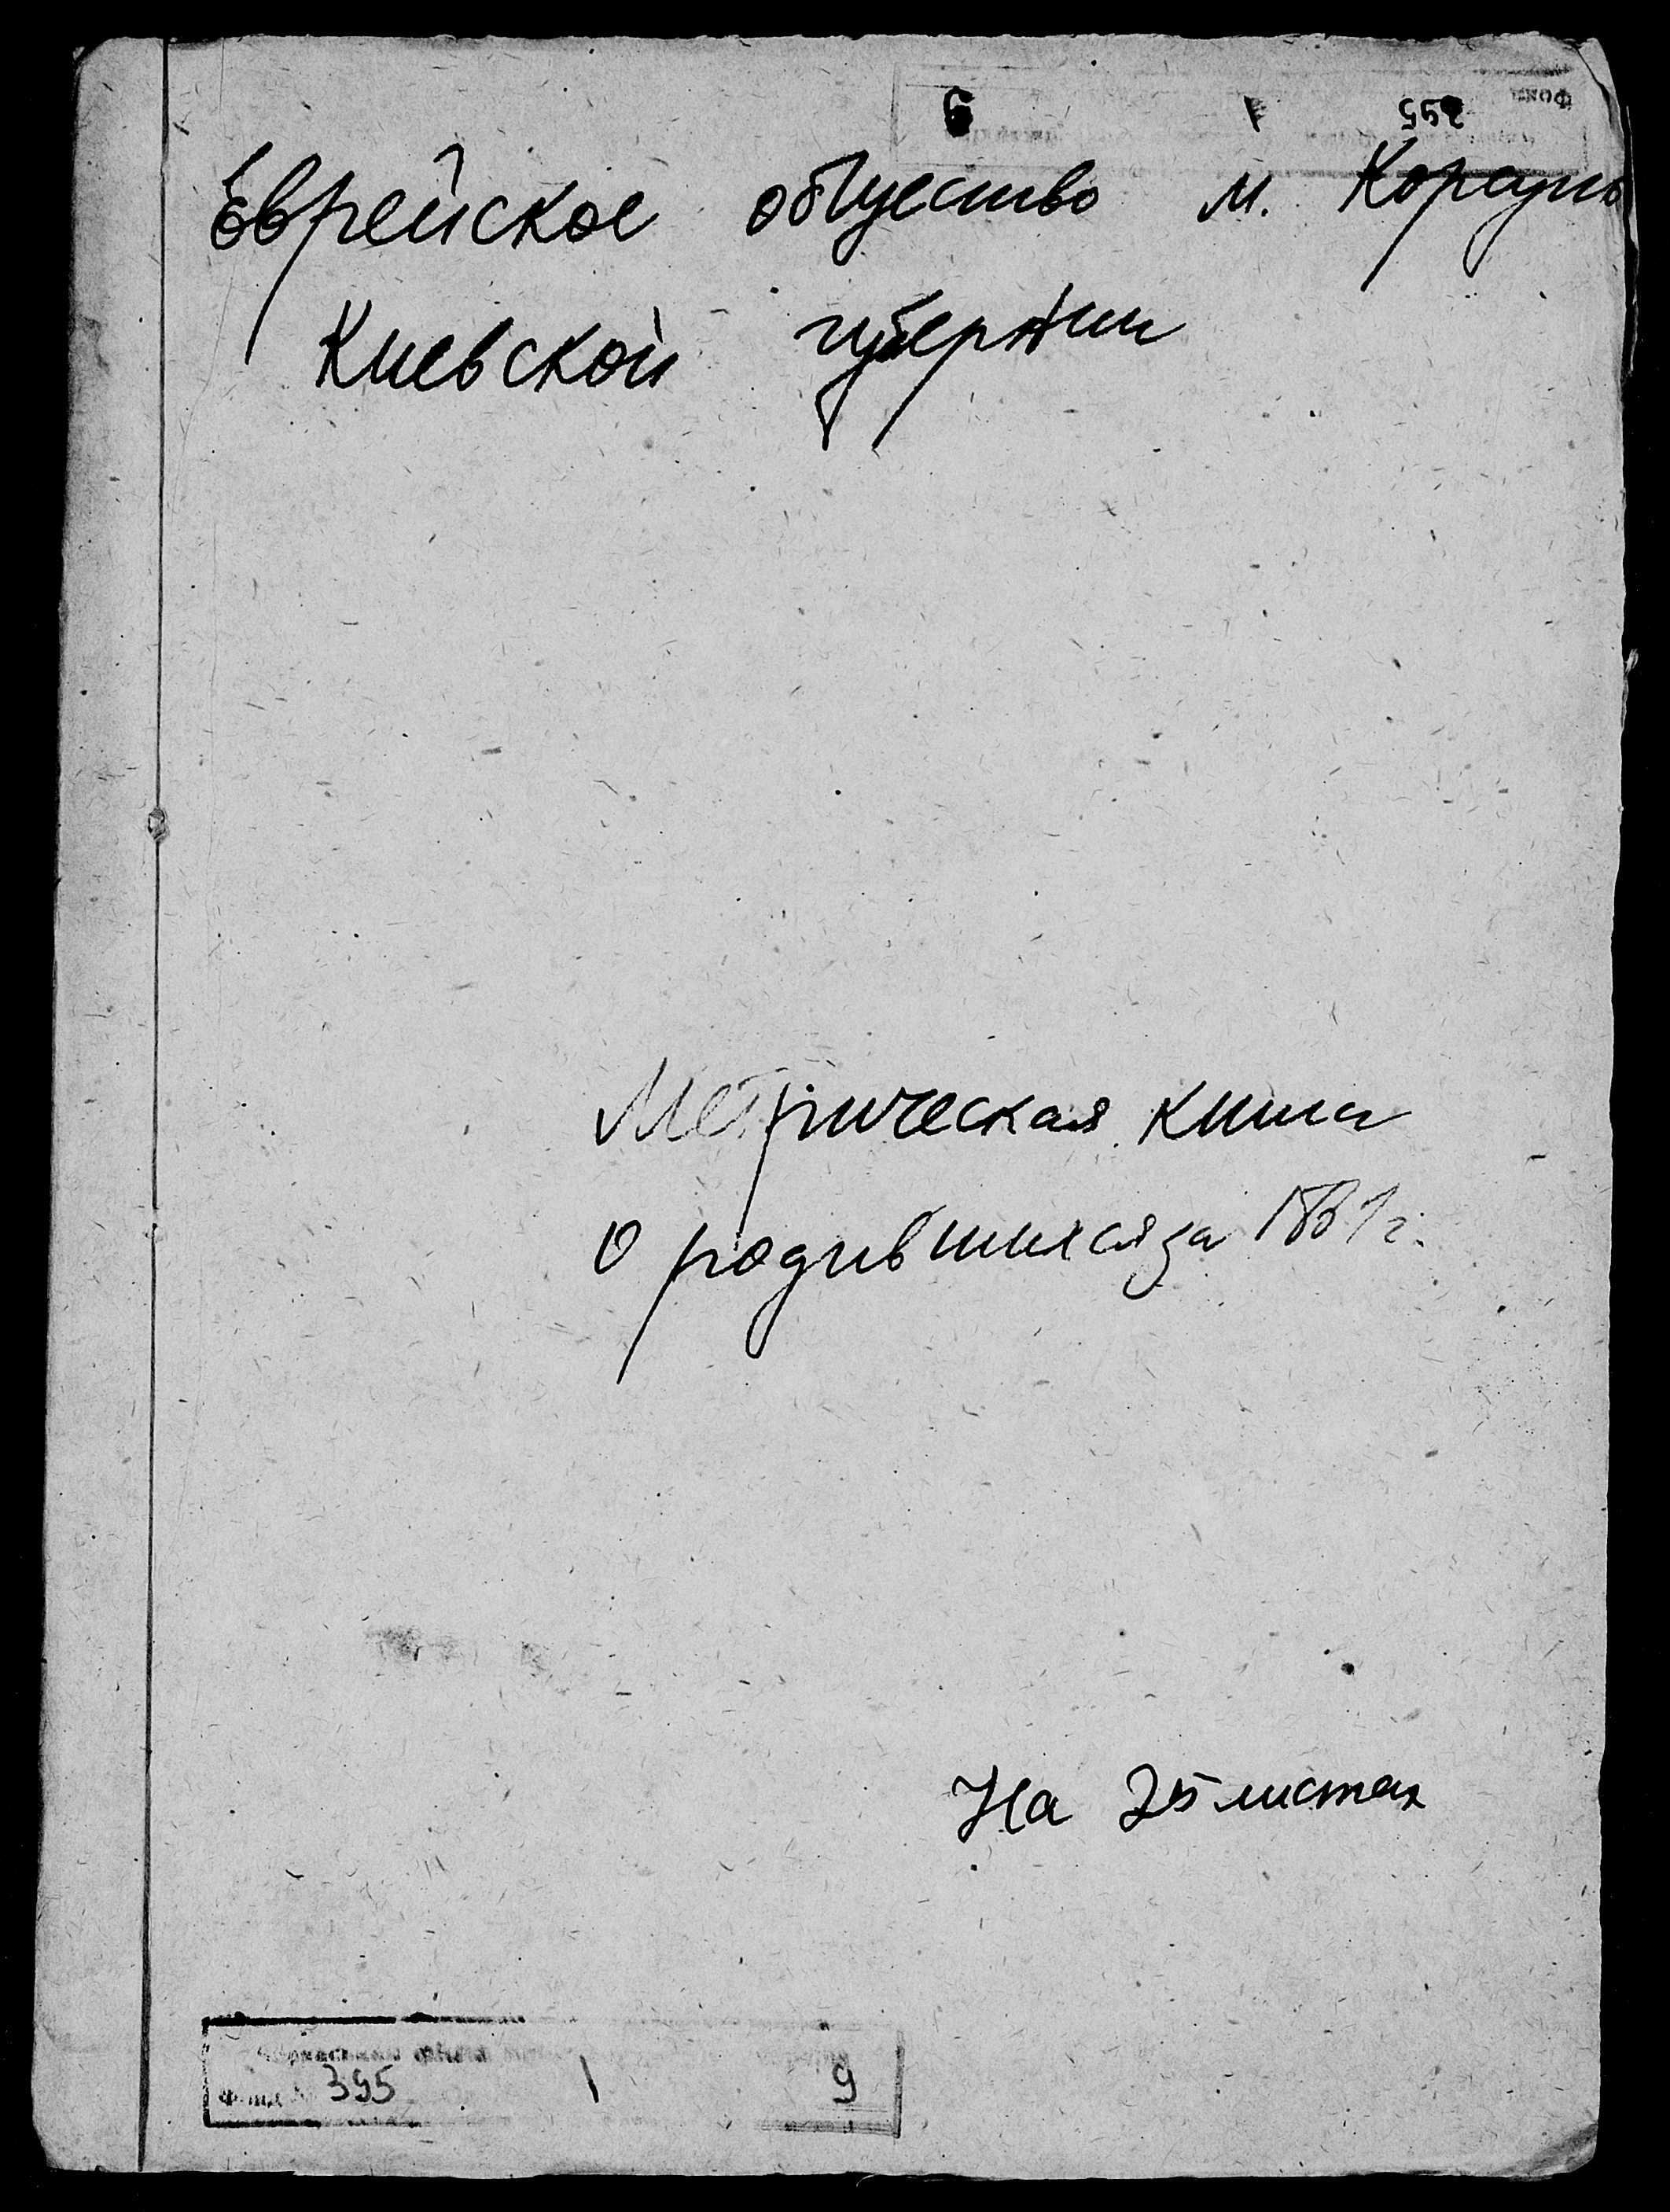 9 1 395 Фонд
Еврейское общество м. Корсунь
Киевской губернии
Метрическая книга
о родившихся за г.
На 25 листах
Фонд 395 1 9